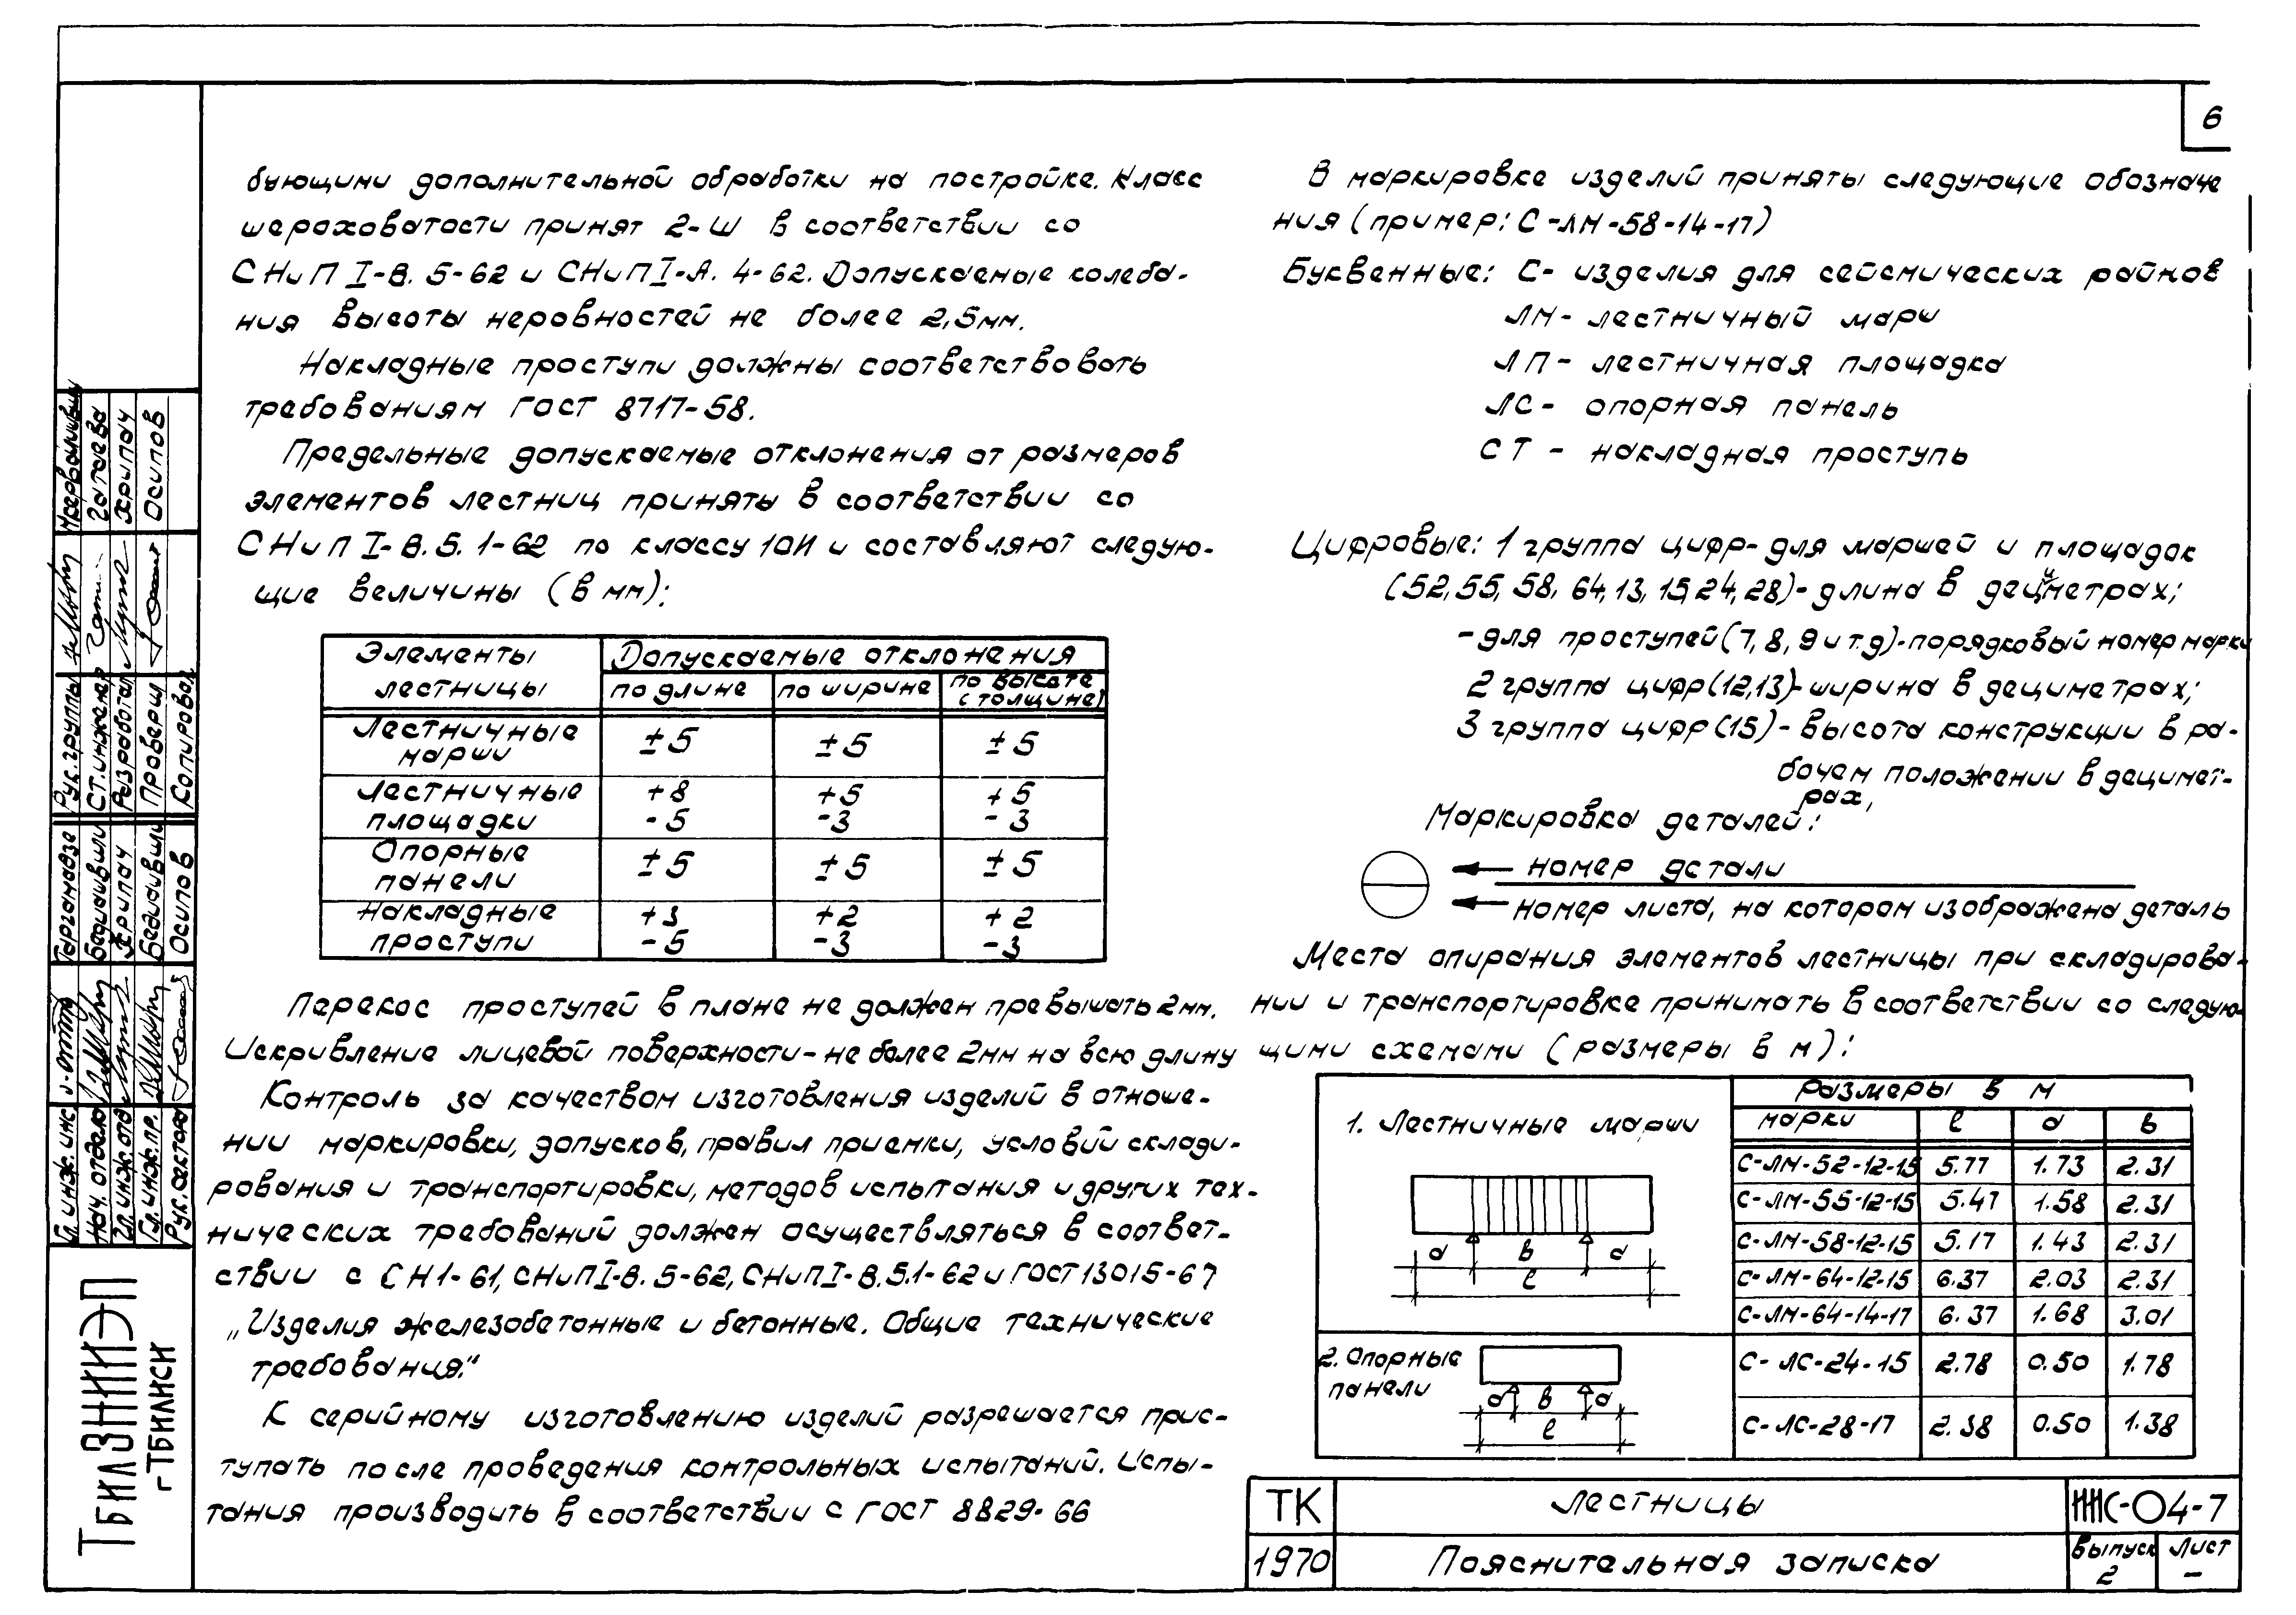 6
бующими дополнительной обработки на постройке. Класс
шероховатости принят 2-Ш в соответствии со
СНиП I-В. 5-62 и СНиП I-А. 4-62. Допускаемые колеба-
ния высоты неровностей не более 2,5мм.
Накладные проступи должны соответствовать
требованиям ГОСТ 8717-58.
Предельные допускаемые отклонения от размеров
элементов лестниц приняты в соответствии со
СНиП I-В.5.1-62 по классу 10И и составляют следую-
щие величины (в мм):
Элементы лестницы | Допускаемые отклонения
по длине | по ширине | по высоте (толщине)
Лестничные марши | ±5 | ±5 | ±5
Лестничные площадки | +8 -5 | +5 -3 | +5 -3
Опорные панели | ±5 | ±5 | ±5
Накладные проступи | +3 -5 | +2 -3 | +2 -3
Перекос проступей в плане не должен превышать 2мм.
Искривление лицевой поверхности - не более 2мм на всю длину
Контроль за качеством изготовления изделий в отноше-
нии маркировки, допусков, правил приемки, условий склади-
рования и транспортировки, методов испытания и других тех-
нических требований должен осуществляться в соответ-
ствии с СН1-61, СНиП I-В. 5-62, СНиП I-В.5.1-62 и ГОСТ 13015-67
„Изделия железобетонные и бетонные. Общие технические
требования."
К серийному изготовлению изделий разрешается прис-
тупать после проведения контрольных испытаний. Испы-
тания производить в соответствии с ГОСТ 8829-66
В маркировке изделий приняты следующие обозначе
ния (пример: С-ЛМ-58-14-17)
Буквенные: С- изделия для сейсмических районов
ЛМ- лестничный марш
ЛП- лестничная площадка
ЛС- опорная панель
СТ - накладная проступь
Цифровые: 1 группа цифр- для маршей и площадок
(52,55,58, 64,13,15,24,28)- длина в дециметрах;
-для проступей (7,8,9 и т.д)-порядковый номер марки
2 группа цифр (12,13)-ширина в дециметрах;
3 группа цифр (15)- высота конструкции в ра-
бочем положении в децимет-
рах,
Маркировка деталей:
номер детали
номер листа, на котором изображена деталь
Места опирания элементов лестницы при складирова-
нии и транспортировке принимать в соответствии со следую-
щими схемами (размеры в м):
1. Лестничные марши
a b a
l
2. Опорные
панели
a b a
l
Размеры в м
марки | l | a | b
С-ЛМ-52-12-15 | 5.77 | 1.73 | 2.31
С-ЛМ-55-12-15 | 5.47 | 1.58 | 2.31
С-ЛМ-58-12-15 | 5.17 | 1.43 | 2.31
С-ЛМ-64-12-15 | 6.37 | 2.03 | 2.31
С-ЛМ-64-14-17 | 6.37 | 1.68 | 3.01
С-ЛС-24-15 | 2.78 | 0.50 | 1.78
С-ЛС-28-17 | 2.38 | 0.50 | 1.38
ТК
1970
Лестницы
Пояснительная записка
ИИС-04-7
Выпуск
2
Лист
–
Рук.группы
Ст.инженер
Разработал Хрипач
Проверил Осипов
Копировал
Гл.инж.инс.
Нач.отдела
Гл.инж.отд. Хрипач
Гл.инж.пр.
Рук.сектора Осипов
ТбилЗНИИЭП
г Тбилиси